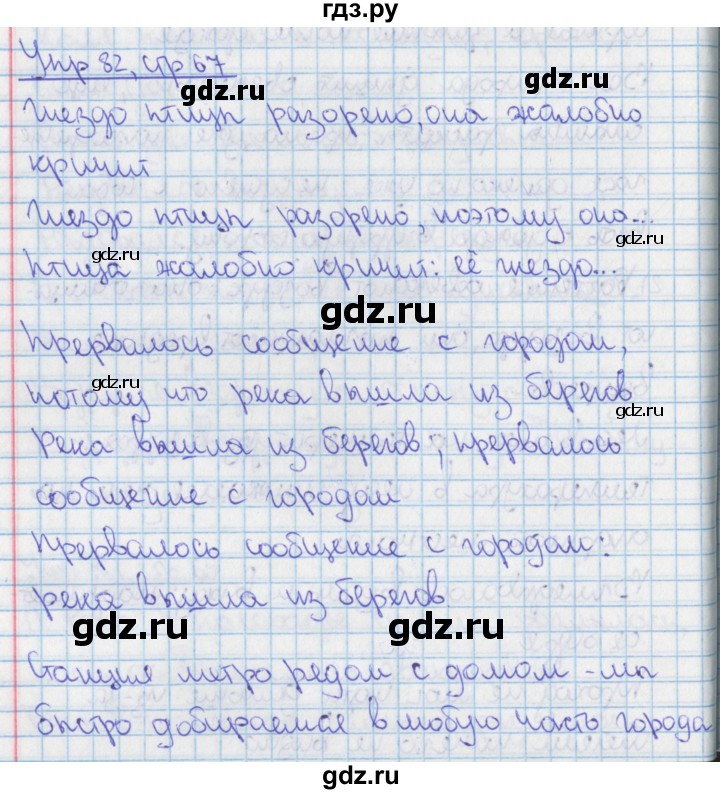 гдз.ру
Упр 82, стр 67
gdz.ru
gdz.ru
Гнездо птицы разорено, она жалобно
кричит
Гнездо птицы разорено, поэтому она...
gdz.ru
gdz.ru
Птица жалобно кричит: её гнездо...
gdz.ru
Прервалось сообщение с городом,
gdz.ru
потому что река вышла из берегов
gdz.ru
Река вышла из берегов, прервалось
сообщение с городом
Прервалось сообщение с городом:
река вышла из берегов
gdz.ru
gdz.ru
Станция метро рядом с домом - мы
быстро добираемся в любую часть города
gdz.ru
gdz.ru
gdz.ru